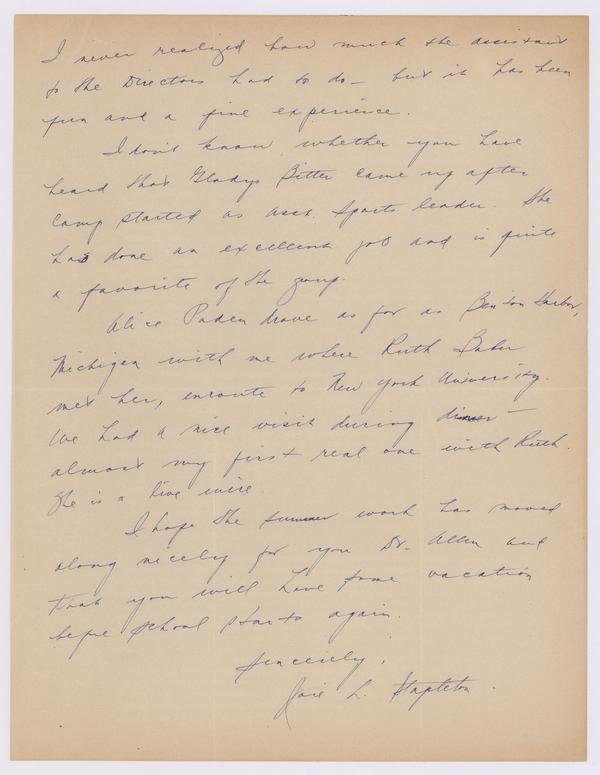 I never realized how much the assistant
to the Directors had to do – but it has been
fun and a fine experience.
I don't know whether you have
heard that Gladys Bitter came up after
camp started as asst. sports leader. She
has done an excellent job and is quite
a favorite of the group.
Alice Paden drove as far as Benton Harbor,
Michigan with me where Ruth
met her, enroute to New York University.
We had a nice visit during dinner –
almost my first real one with Ruth.
She is a live wire.
I hope the summer work has moved
along nicely for you Dr. Allen and
that you will have some vacation
before school starts again.
Sincerely,
L. Stapleton.